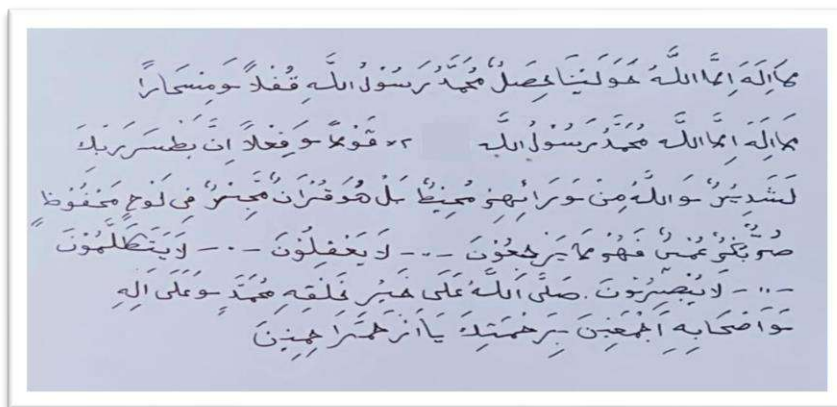 لَا اِلٰهَ اِلَّا اللّٰهُ حَوَلَيْنَا حِصَلٌ مُحَمَّدٌ رَسُوْلُ اللّٰهِ قُفْلًا وَمِسْمَارًا
لَا اِلٰهَ اِلَّا اللّٰهُ مُحَمَّدٌ رَسُوْلُ اللّٰهِ ×٢ قَوْلًا وَفِعْلًا اِنَّ بَطْسَرَ رَبِّكَ
لَشَدِيْدٌ وَاللّٰهُ مِنْ وَرَائِهِمْ مُحِيْطٌ بَلْ هُوَ قُرْاٰنٌ مَجِيْدٌ فِى لَوْحٍ مَحْفُوْظٍ
صُمٌّ بُكْمٌ عُمْيٌ فَهُمْ لَا يَرْجِعُوْنَ -..- لَا يَعْقِلُوْنَ -.- لَا يَتَكَلَّمُوْنَ
-..- لَا يُبْصِرُوْنَ. صَلَّى اللّٰهُ عَلَى خَيْرِ خَلْقِهِ مُحَمَّدٍ وَعَلَى اٰلِهِ
وَاَصْحَابِهِ اَجْمَعِيْنَ بِرَحْمَتِكَ يَا اَرْحَمَ رَاحِمِيْنَ